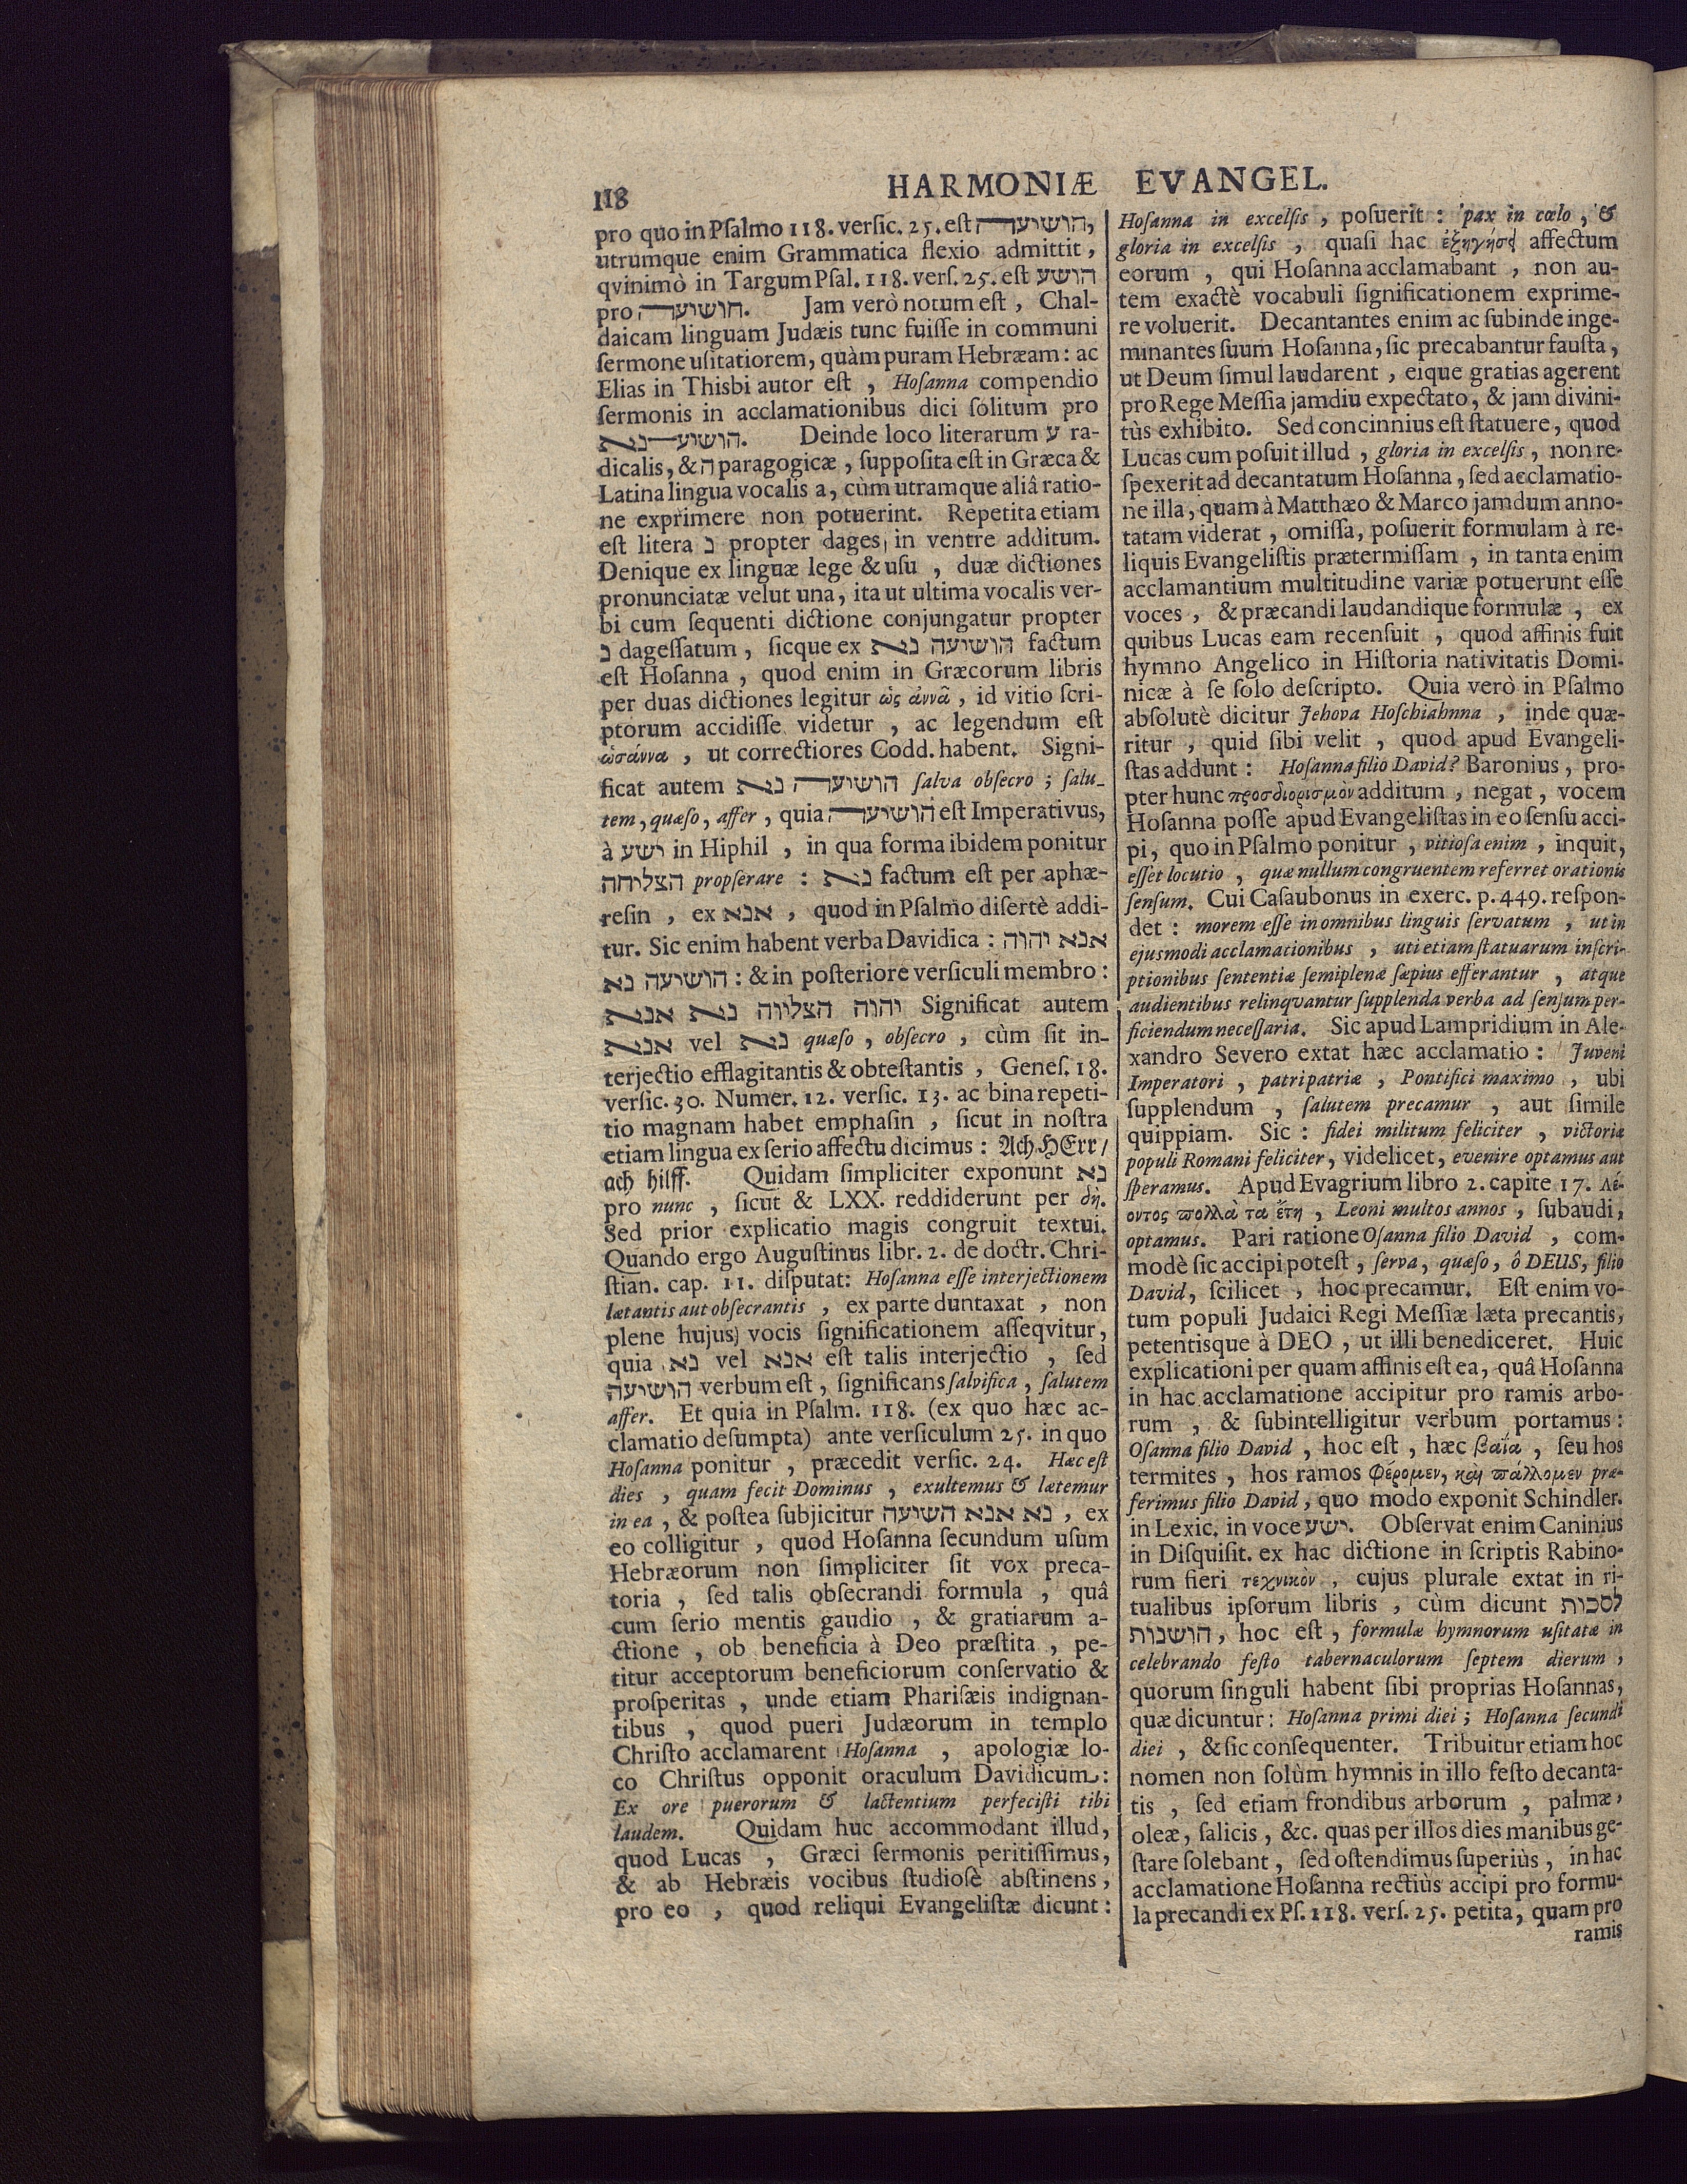 118
HARMONIÆ EVANGEL.
pro quo in Pſalmo 118. verſic. 25. eſt הושיעה,
utrumque enim Grammatica flexio admittit,
qvinimò in Targum Pſal. 118. verſ. 25. eſt הושע
pro חושיעה. Jam verò notum eſt, Chal-
daicam linguam Judæis tunc fuiſſe in communi
ſermone uſitatiorem, quàm puram Hebræam: ac
Elias in Thisbi autor eſt, Hoſanna compendio
ſermonis in acclamationibus dici ſolitum pro
הושיענא. Deinde loco literarum ע ra-
dicalis, & ה paragogicæ, ſuppoſita eſt in Græca &
Latina lingua vocalis a, cùm utramque aliâ ratio-
ne exprimere non potuerint. Repetita etiam
eſt litera נ propter dages in ventre additum.
Denique ex linguæ lege & uſu, duæ dictiones
pronunciatæ velut una, ita ut ultima vocalis ver-
bi cum ſequenti dictione conjungatur propter
נ dageſſatum, ſicque ex הושיעה נא factum
eſt Hoſanna, quod enim in Græcorum libris
per duas dictiones legitur ὡς ἀννᾶ, id vitio ſcri-
ptorum accidiſſe videtur, ac legendum eſt
ὡσάννα, ut correctiores Codd. habent. Signi-
ficat autem הושיעה נא ſalva obſecro; ſalu-
tem, quæſo, affer, quia הושיעה eſt Imperativus,
à ישע in Hiphil, in qua forma ibidem ponitur
הצליחה propſerare: נא factum eſt per aphæ-
reſin, ex אנא, quod in Pſalmo diſertè addi-
tur. Sic enim habent verba Davidica: אנא יהוה
הושיעה נא: & in poſteriore verſiculi membro:
יהוה הצליוה נא אנא Significat autem
אנא vel נא quæſo, obſecro, cùm ſit in-
terjectio efflagitantis & obteſtantis, Geneſ. 18.
verſic. 30. Numer. 12. verſic. 13. ac bina repeti-
tio magnam habet emphaſin, ſicut in noſtra
etiam lingua ex ſerio affectu dicimus: Ach HErr/
ach hilff. Quidam ſimpliciter exponunt נא
pro nunc, ſicut & LXX. reddiderunt per δὴ.
Sed prior explicatio magis congruit textui.
Quando ergo Auguſtinus libr. 2. de doctr. Chri-
ſtian. cap. 11. diſputat: Hoſanna eſſe interjectionem
lætantis aut obſecrantis, ex parte duntaxat, non
plene hujus vocis ſignificationem aſſeqvitur,
quia נא vel אנא eſt talis interjectio, ſed
הושיעה verbum eſt, ſignificans ſalvifica, ſalutem
affer. Et quia in Pſalm. 118. (ex quo hæc ac-
clamatio deſumpta) ante verſiculum 25. in quo
Hoſanna ponitur, præcedit verſic. 24. Hæc eſt
dies, quam fecit Dominus, exultemus & lætemur
in ea, & poſtea ſubjicitur נא אנא השיעה, ex
eo colligitur, quod Hoſanna ſecundum uſum
Hebræorum non ſimpliciter ſit vox preca-
toria, ſed talis obſecrandi formula, quâ
cum ſerio mentis gaudio, & gratiarum a-
ctione, ob beneficia à Deo præſtita, pe-
titur acceptorum beneficiorum conſervatio &
proſperitas, unde etiam Phariſæis indignan-
tibus, quod pueri Judæorum in templo
Chriſto acclamarent Hoſanna, apologiæ lo-
co Chriſtus opponit oraculum Davidicum:
Ex ore puerorum & lactentium perfeciſti tibi
laudem. Quidam huc accommodant illud,
quod Lucas, Græci ſermonis peritiſſimus,
& ab Hebræis vocibus ſtudioſè abſtinens,
pro eo, quod reliqui Evangeliſtæ dicunt:
Hoſanna in excelſis, poſuerit: pax in cœlo, &
gloria in excelſis, quaſi hac ἐξηγήσει affectum
eorum, qui Hoſanna acclamabant, non au-
tem exactè vocabuli ſignificationem exprime-
re voluerit. Decantantes enim ac ſubinde inge-
minantes ſuum Hoſanna, ſic precabantur fauſta,
ut Deum ſimul laudarent, eique gratias agerent
pro Rege Meſſia jamdiu expectato, & jam divini-
tùs exhibito. Sed concinnius eſt ſtatuere, quod
Lucas cum poſuit illud, gloria in excelſis, non re-
ſpexerit ad decantatum Hoſanna, ſed acclamatio-
ne illa, quam à Matthæo & Marco jamdum anno-
tatam viderat, omiſſa, poſuerit formulam à re-
liquis Evangeliſtis prætermiſſam, in tanta enim
acclamantium multitudine variæ potuerunt eſſe
voces, & præcandi laudandique formulæ, ex
quibus Lucas eam recenſuit, quod affinis fuit
hymno Angelico in Hiſtoria nativitatis Domi-
nicæ à ſe ſolo deſcripto. Quia verò in Pſalmo
abſolutè dicitur Jehova Hoſchiahnna, inde quæ-
ritur, quid ſibi velit, quod apud Evangeli-
ſtas addunt: Hoſanna filio David? Baronius, pro-
pter hunc προσδιορισμὸν additum, negat, vocem
Hoſanna poſſe apud Evangeliſtas in eo ſenſu acci-
pi, quo in Pſalmo ponitur, vitioſa enim, inquit,
eſſet locutio, quæ nullum congruentem referret orationis
ſenſum. Cui Caſaubonus in exerc. p. 449. reſpon-
det: morem eſſe in omnibus linguis ſervatum, ut in
ejusmodi acclamationibus, uti etiam ſtatuarum inſcri-
ptionibus ſententiæ ſemiplenæ ſæpius efferantur, atque
audientibus relinqvantur ſupplenda verba ad ſenſum per-
ficiendum neceſſaria. Sic apud Lampridium in Ale-
xandro Severo extat hæc acclamatio: Juveni
Imperatori, patri patriæ, Pontifici maximo, ubi
ſupplendum, ſalutem precamur, aut ſimile
quippiam. Sic: fidei militum feliciter, victoriæ
populi Romani feliciter, videlicet, evenire optamus aut
ſperamus. Apud Evagrium libro 2. capite 17. Λέ-
οντος πολλὰ τα ἔτη, Leoni multos annos, ſubaudi,
optamus. Pari ratione Oſanna filio David, com-
modè ſic accipi poteſt, ſerva, quæſo, ô DEUS, filio
David, ſcilicet, hoc precamur. Eſt enim vo-
tum populi Judaici Regi Meſſiæ læta precantis,
petentisque à DEO, ut illi benediceret. Huic
explicationi per quam affinis eſt ea, quâ Hoſanna
in hac acclamatione accipitur pro ramis arbo-
rum, & ſubintelligitur verbum portamus:
Oſanna filio David, hoc eſt, hæc βαΐα, ſeu hos
termites, hos ramos φέρομεν, καὶ πάλλομεν præ-
ferimus filio David, quo modo exponit Schindler.
in Lexic. in voce ישע. Obſervat enim Caninius
in Diſquiſit. ex hac dictione in ſcriptis Rabino-
rum fieri τεχνικὸν, cujus plurale extat in ri-
tualibus ipſorum libris, cùm dicunt לסכות
הושנות, hoc eſt, formulæ hymnorum uſitatæ in
celebrando feſto tabernaculorum ſeptem dierum,
quorum ſinguli habent ſibi proprias Hoſannas,
quæ dicuntur: Hoſanna primi diei; Hoſanna ſecundi
diei, & ſic conſequenter. Tribuitur etiam hoc
nomen non ſolùm hymnis in illo feſto decanta-
tis, ſed etiam frondibus arborum, palmæ,
oleæ, ſalicis, &c. quas per illos dies manibus ge-
ſtare ſolebant, ſed oſtendimus ſuperiùs, in hac
acclamatione Hoſanna rectiùs accipi pro formu-
la precandi ex Pſ. 118. verſ. 25. petita, quam pro
ramis